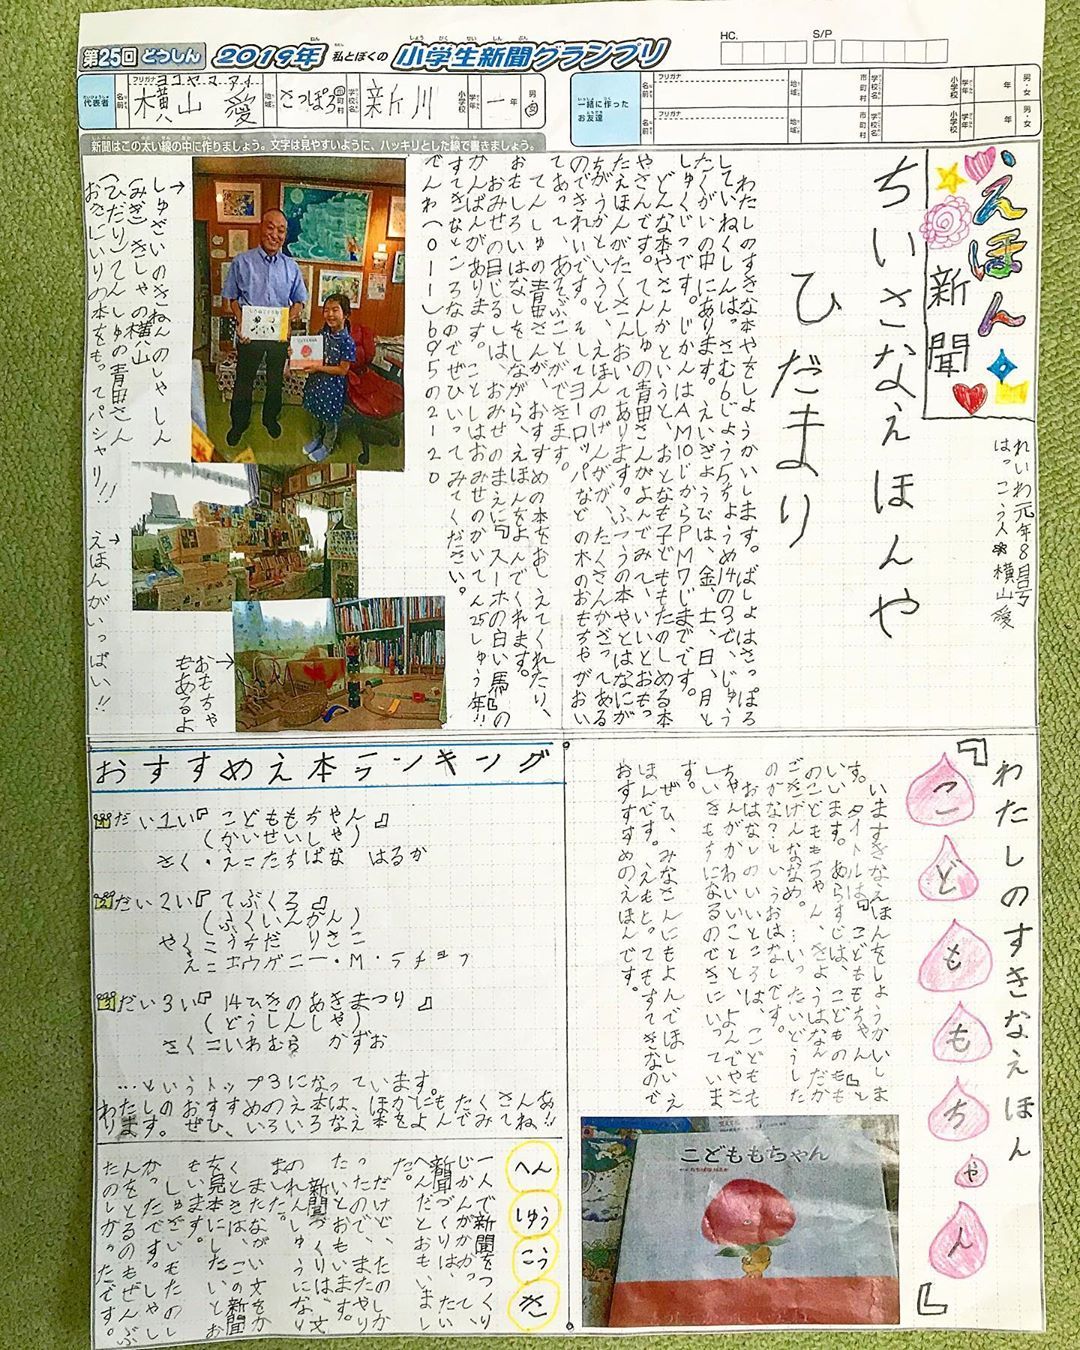 第25回 どうしん 2019年 私とぼくの 小学生新聞グランプリ
HC.
S/P
代表者
フリガナ ヨコヤマ アイ
名前 横山 愛
地域 さっぽろ 市町村
新川 小学校
学年 一年
男・女
一緒に作ったお友達
フリガナ
名前
地域
市町村
小学校
学年
年
男・女
フリガナ
名前
地域
市町村
小学校
学年
年
男・女
新聞はこの太い線の中に作りましょう。文字は見やすいように、ハッキリとした線で書きましょう。
えほん新聞
れいわ元年8月号
はっこう人 横山愛
ちいさなえほんや
ひだまり
わたしのすきな本やをしょうかいします。ばしょはさっぽろ
していねくしんは。さむ6じょう5ちょうめ14の3で、じゅう
たくがいの中にあります。えいぎょうびは、金、土、日、月と
しゅくじつです。じかんはAM10じからPM7じまでです。
どんな本やさんかというと、おとなも子どももたのしめる本
やさんです。てんしゅの青田さんがよんでみて、いいとおもっ
たえほんがたくさんおいてあります。ふつうの本やとはなにが
ちがうかというと、えほんのげんがが、たくさんかざってある
のできれいです。そしてヨーロッパなどの木のおもちゃがおい
てあって、あそぶことができます。
てんしゅの青田さんが、おすすめの本をおしえてくれたり、
おもしろいはなしをしながら、えほんをよんでくれます。
おみせの目じるしは、おみせのまえに『スーホの白い馬』の
かんばんがあります。ことしはおみせのかいてん25しゅう年!!
すてきなところなのでぜひいってみてください。
でんわ(011)695の2120
→しゅざいのきねんのしゃしん
(みぎ)きしゃの横山
(ひだり)てんしゅの青田さん
おきにいりの本をもってパシャリ!!
→えほんがいっぱい!!
→おもちゃ
もあるよ
わたしのすきなえほん
『こどももちゃん』
いますきなえほんをしょうかいしま
す。タイトルは『こどももちゃん』と
いいます。あらすじは、こどものもも
のこどももちゃん、きょうはなんだか
ごきげんななめ。…いったいどうした
のかな?というおはなしです。
おはなしのいいところは、こどもも
ちゃんがかわいいことと、よんでやさ
しいきもちになるのできにいっていま
す。
ぜひ、みなさんにもよんでほしいえ
ほんです。えもと。てもすてきなので
おすすすめのえほんです。
こどももちゃん
おすすめえ本ランキング
1 だい1い『こどももちゃん』
(かいせいしゃ)
さく・えこたちばな はるか
2 だい2い『てぶくろ』
(ふくいんかん)
やくこうちだ りさこ
えこエウゲニー・M・ラチョフ
3 だい3い『14ひきのあきまつり』
(どうしんしゃ)
さくこいわむら かずお
…というトップ3になっています。
わたしのおすすめのえ本は、ほかにもたくさんあ
ります。ぜひ、いろいろなえ本をよんでみてね!!
へんしゅうこうき
一人で新聞をつくり
じかんがかかって、
新聞づくりは、たい
へんだとおもいまし
た。
だけど、たのしか
ったので、またやり
たいとおもいます。
新聞づくりは、文
のれんしゅうになり
ました。
またながい文をか
くときは、この新聞
を見本にしたいとお
もいます。
しゅざいもたのし
かったです。しゃし
んをとるのもぜんぶ
たのしかったです。